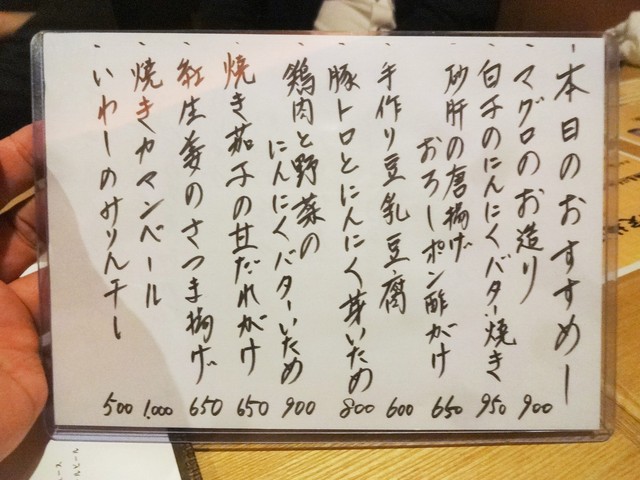 -本日のおすすめ-
・マグロのお造り 900
・白子のにんにくバター焼き 950
・砂肝の唐揚げ
おろしポン酢がけ 650
・手作り豆乳豆腐 600
・豚トロとにんにく芽いため 800
・鶏肉と野菜の
にんにくバターいため 900
・焼き茄子の甘だれがけ 650
・紅生姜のさつま揚げ 650
・焼きカマンベール 1,000
・いわしのみりん干し 500